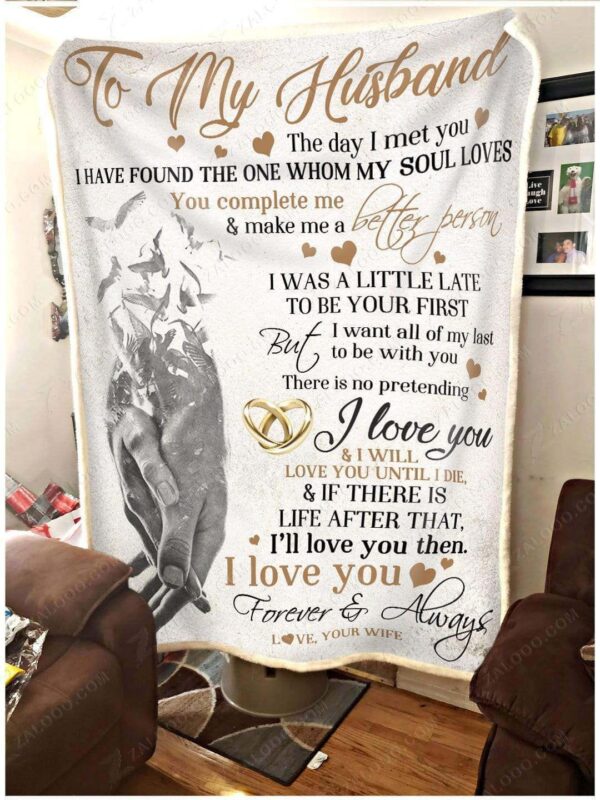 To My Husband
The day I met you
I HAVE FOUND THE ONE WHOM MY SOUL LOVES
You complete me
& make me a better person
I WAS A LITTLE LATE
TO BE YOUR FIRST
But I want all of my last
to be with you
There is no pretending
I love you
& I WILL
LOVE YOU UNTIL I DIE,
& IF THERE IS
LIFE AFTER THAT,
I'll love you then.
I love you
Forever & Always
LOVE, YOUR WIFE
Live
Laugh
Love
ZALOOO.COM